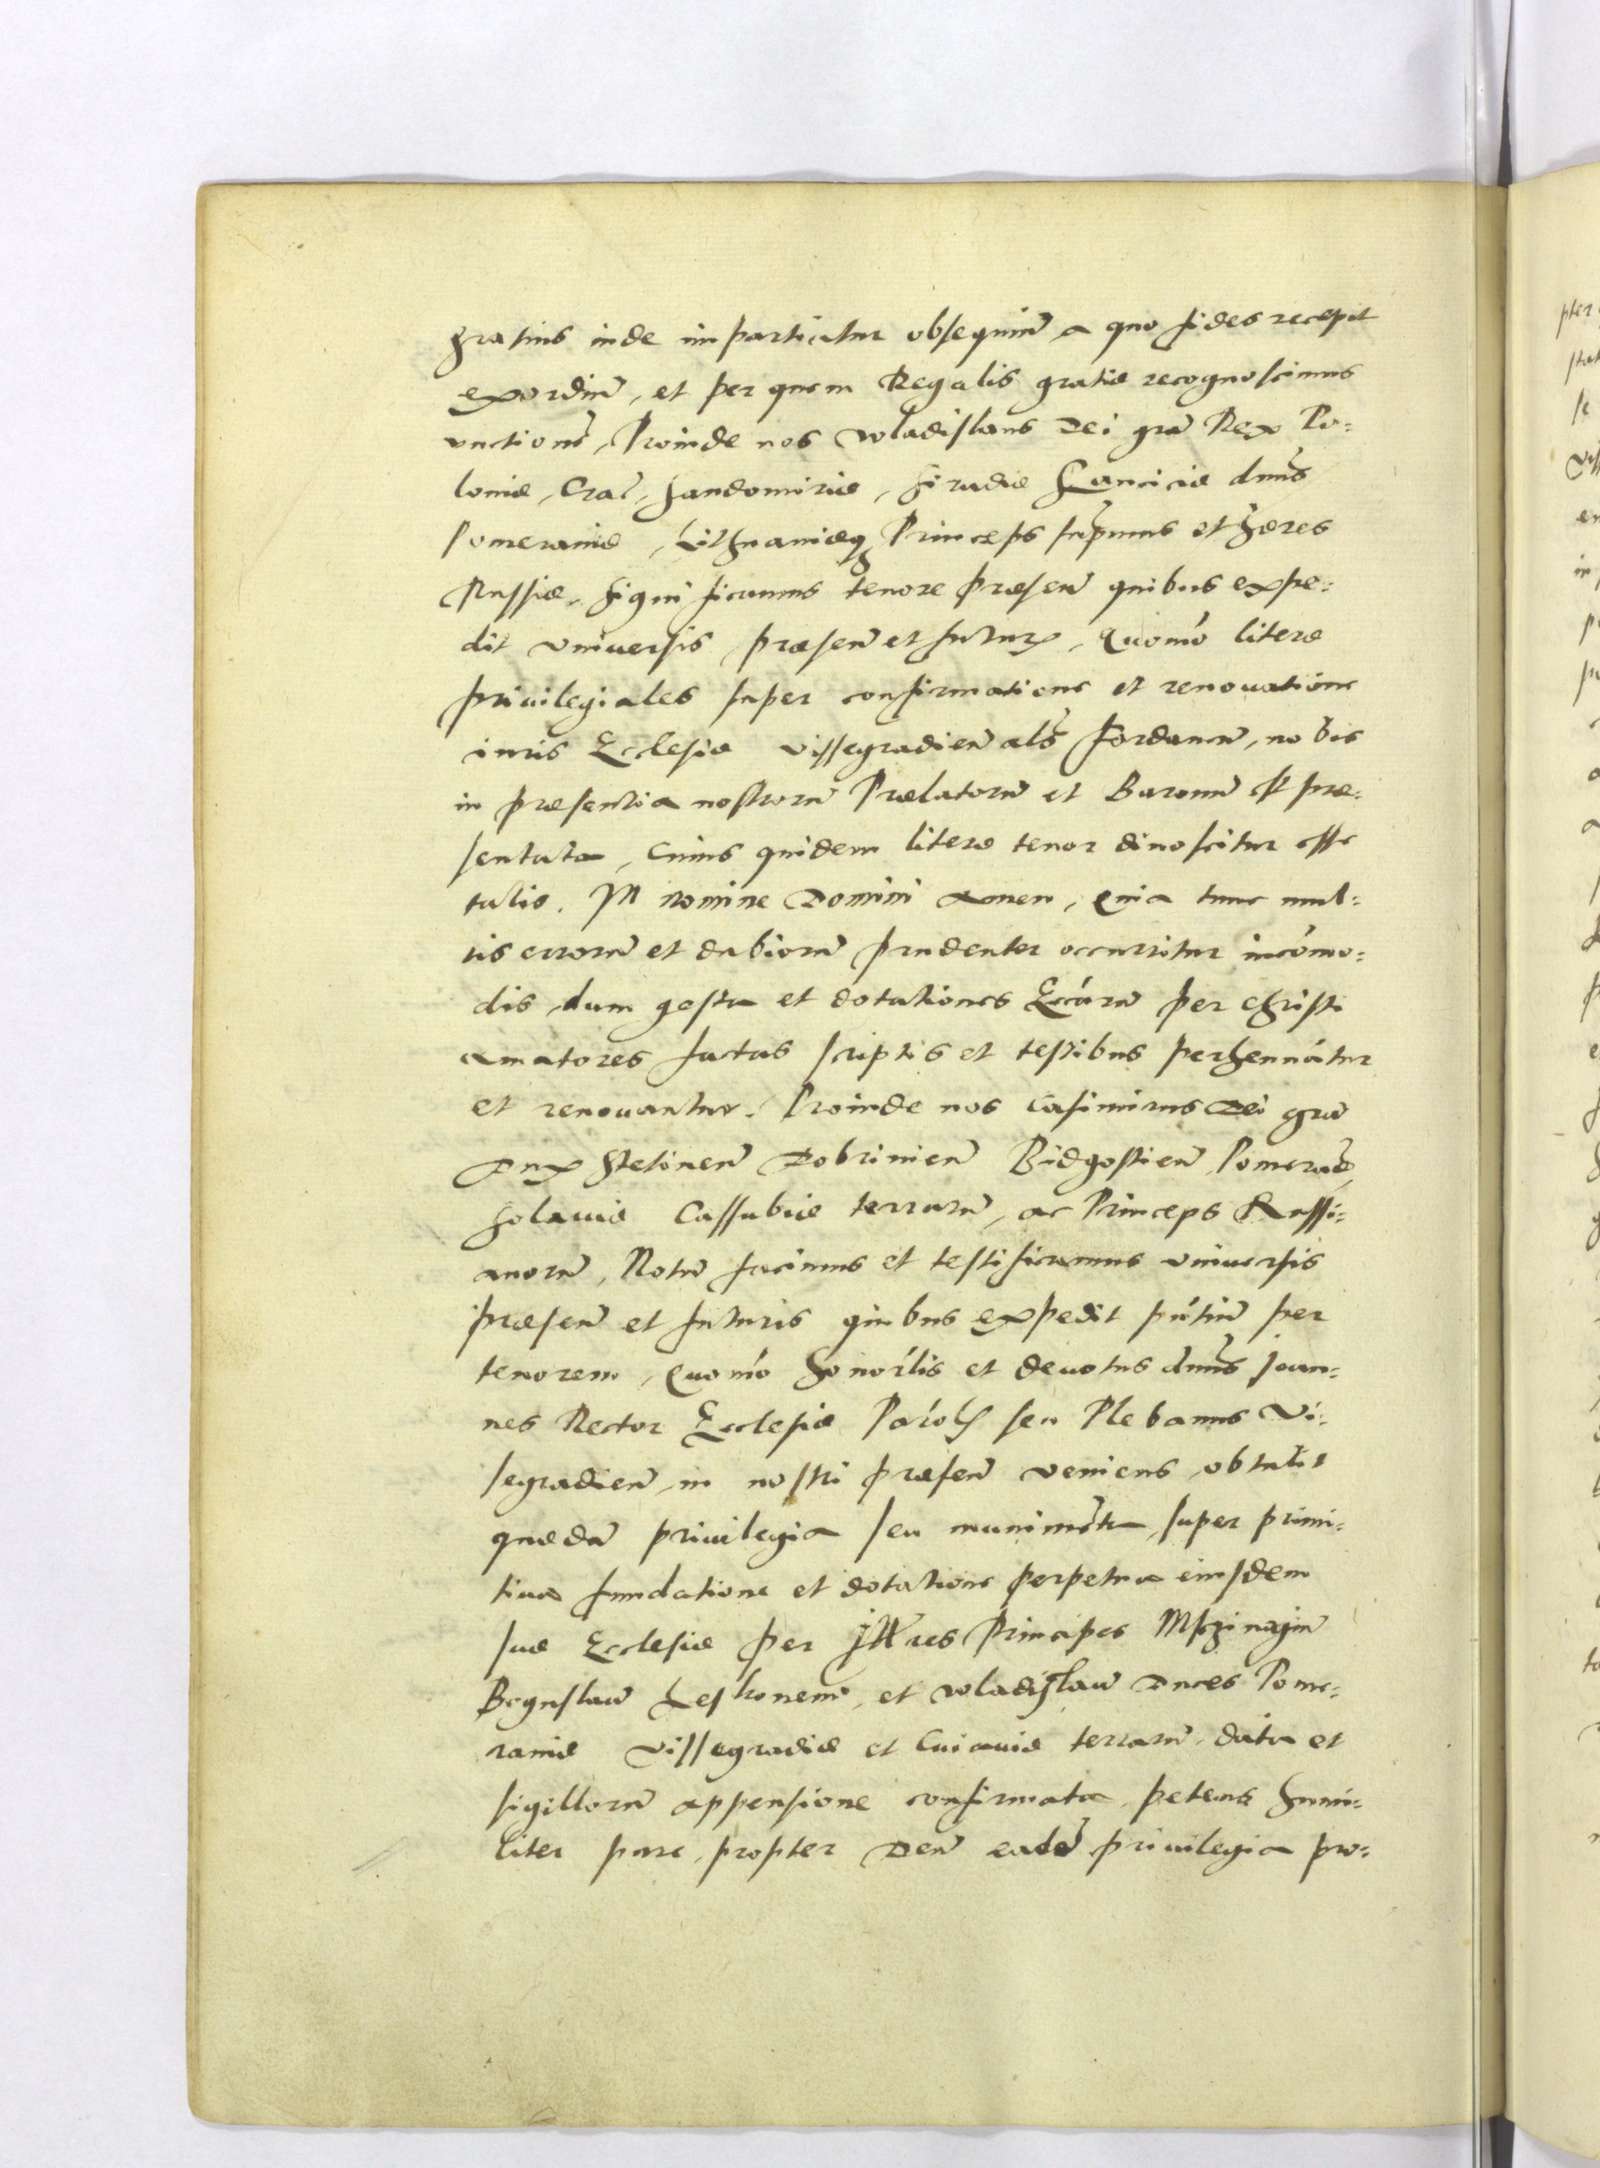 gratius inde impartiatur obsequiū a quo fides recepit
exordiū, et per quem Regalis gratiæ recognoscimus
vnctionē, Proinde nos Wladislaus Dei grā Rex Po=
loniæ, Crac, Sandomiriæ, Siradiæ Lanciciæ dnūs
Pomeraniæ, Lithuaniæq, Princeps supmus et hæres
Russiæ, Significamus tenore præsen̄ quibus expe=
dit vniuersis præsen̄ et futur, Quomō literæ
priuilegiales super confirmatione et renouatione
iuris Ecclesiæ Vissegradien̄ als̄ Fordanen̄, nobis
in præsentia nostrorū Prælatorū et Baronū st præ=
sentata, Cuius quidem literæ tenor dinoscitur esse
talis. In nomine Domini Amen, Quia tunc mul=
tis errorū et dubiorū prudenter occurritur incōmo=
dis, dum gesta et dotationes Eccārū per Christi
amatores factas scriptis et testibus perhennātur
et renouantur. Proinde nos Casimirus Dei grā
Dux Stetinen̄ Dobrinien̄ Bidgostien̄ Pomeraniæ,
Solauiæ Cassubiæ terrarū, ac Princeps Russi=
anorū, Notū facimus et testificamus vniuersis
præsen̄ et futuris quibus expedit pn̄tiū per
tenorem, Quomō honorlis et deuotus dnūs Joan=
nes Rector Ecclesiæ Parolis seu Plebanus Vi=
segradien̄, in nostri præsen̄ veniens, obtulit
quædā priuilegia seu munimēta, super primi=
tiua fundatione et dotatione perpetua eiusdem
suæ Ecclesiæ per Illres Principes Msczinogiū
Boguslaū Leskonem, et Wladislaū Duces Pome=
raniæ Vissegradiæ et Cuiauiæ terrarū, data et
sigillorū appensione confirmata, petens humi=
liter pure, propter Deū eadē priuilegia pro=